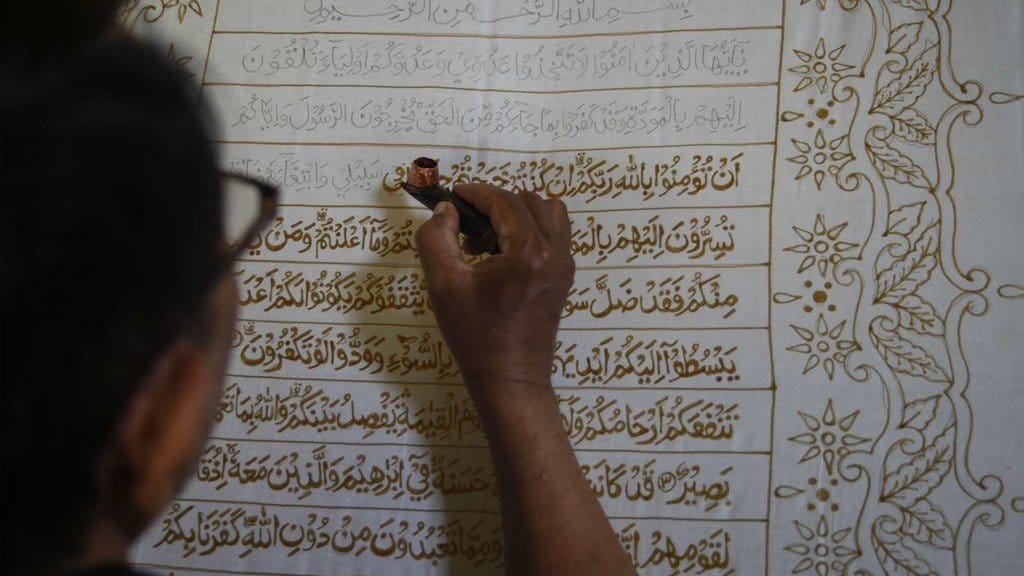 بِسْمِ اللهِ الرَّحْمٰنِ الرَّحِيْمِ
يٰٓاَيُّهَا الَّذِيْنَ اٰمَنُوْا لَا تَتَّخِذُوْا عَدُوِّيْ وَعَدُوَّكُمْ اَوْلِيَآءَ تُلْقُوْنَ
اِلَيْهِمْ بِالْمَوَدَّةِ وَقَدْ كَفَرُوْا بِمَا جَآءَكُمْ مِّنَ الْحَقِّ يُخْرِجُوْنَ الرَّسُوْلَ وَاِيَّاكُمْ
اَنْ تُؤْمِنُوْا بِاللهِ رَبِّكُمْ اِنْ كُنْتُمْ سَبِيْلِيْ وَابْتِغَآءَ
تُسِرُّوْنَ اِلَيْهِمْ وَمَآ اَعْلَنْتُمْ وَمَنْ
مِنْكُمْ فَقَدْ ضَلَّ يَثْقَفُوْكُمْ يَكُوْنُوْا لَكُمْ
يَبْسُطُوْٓا اِلَيْكُمْ بِالسُّوْٓءِ وَوَدُّوْا لَوْ تَكْفُرُوْنَ
تَنْفَعَكُمْ اَرْحَامُكُمْ وَلَآ الْقِيٰمَةِ يَفْصِلُ بَيْنَكُمْ وَاللهُ بِمَا
بَصِيْرٌ ٣ قَدْ كَانَتْ حَسَنَةٌ فِيْٓ اِبْرٰهِيْمَ وَالَّذِيْنَ مَعَهٗ
لِقَوْمِهِمْ وَمِمَّا تَعْبُدُوْنَ مِنْ دُوْنِ اللهِ كَفَرْنَا بِكُمْ